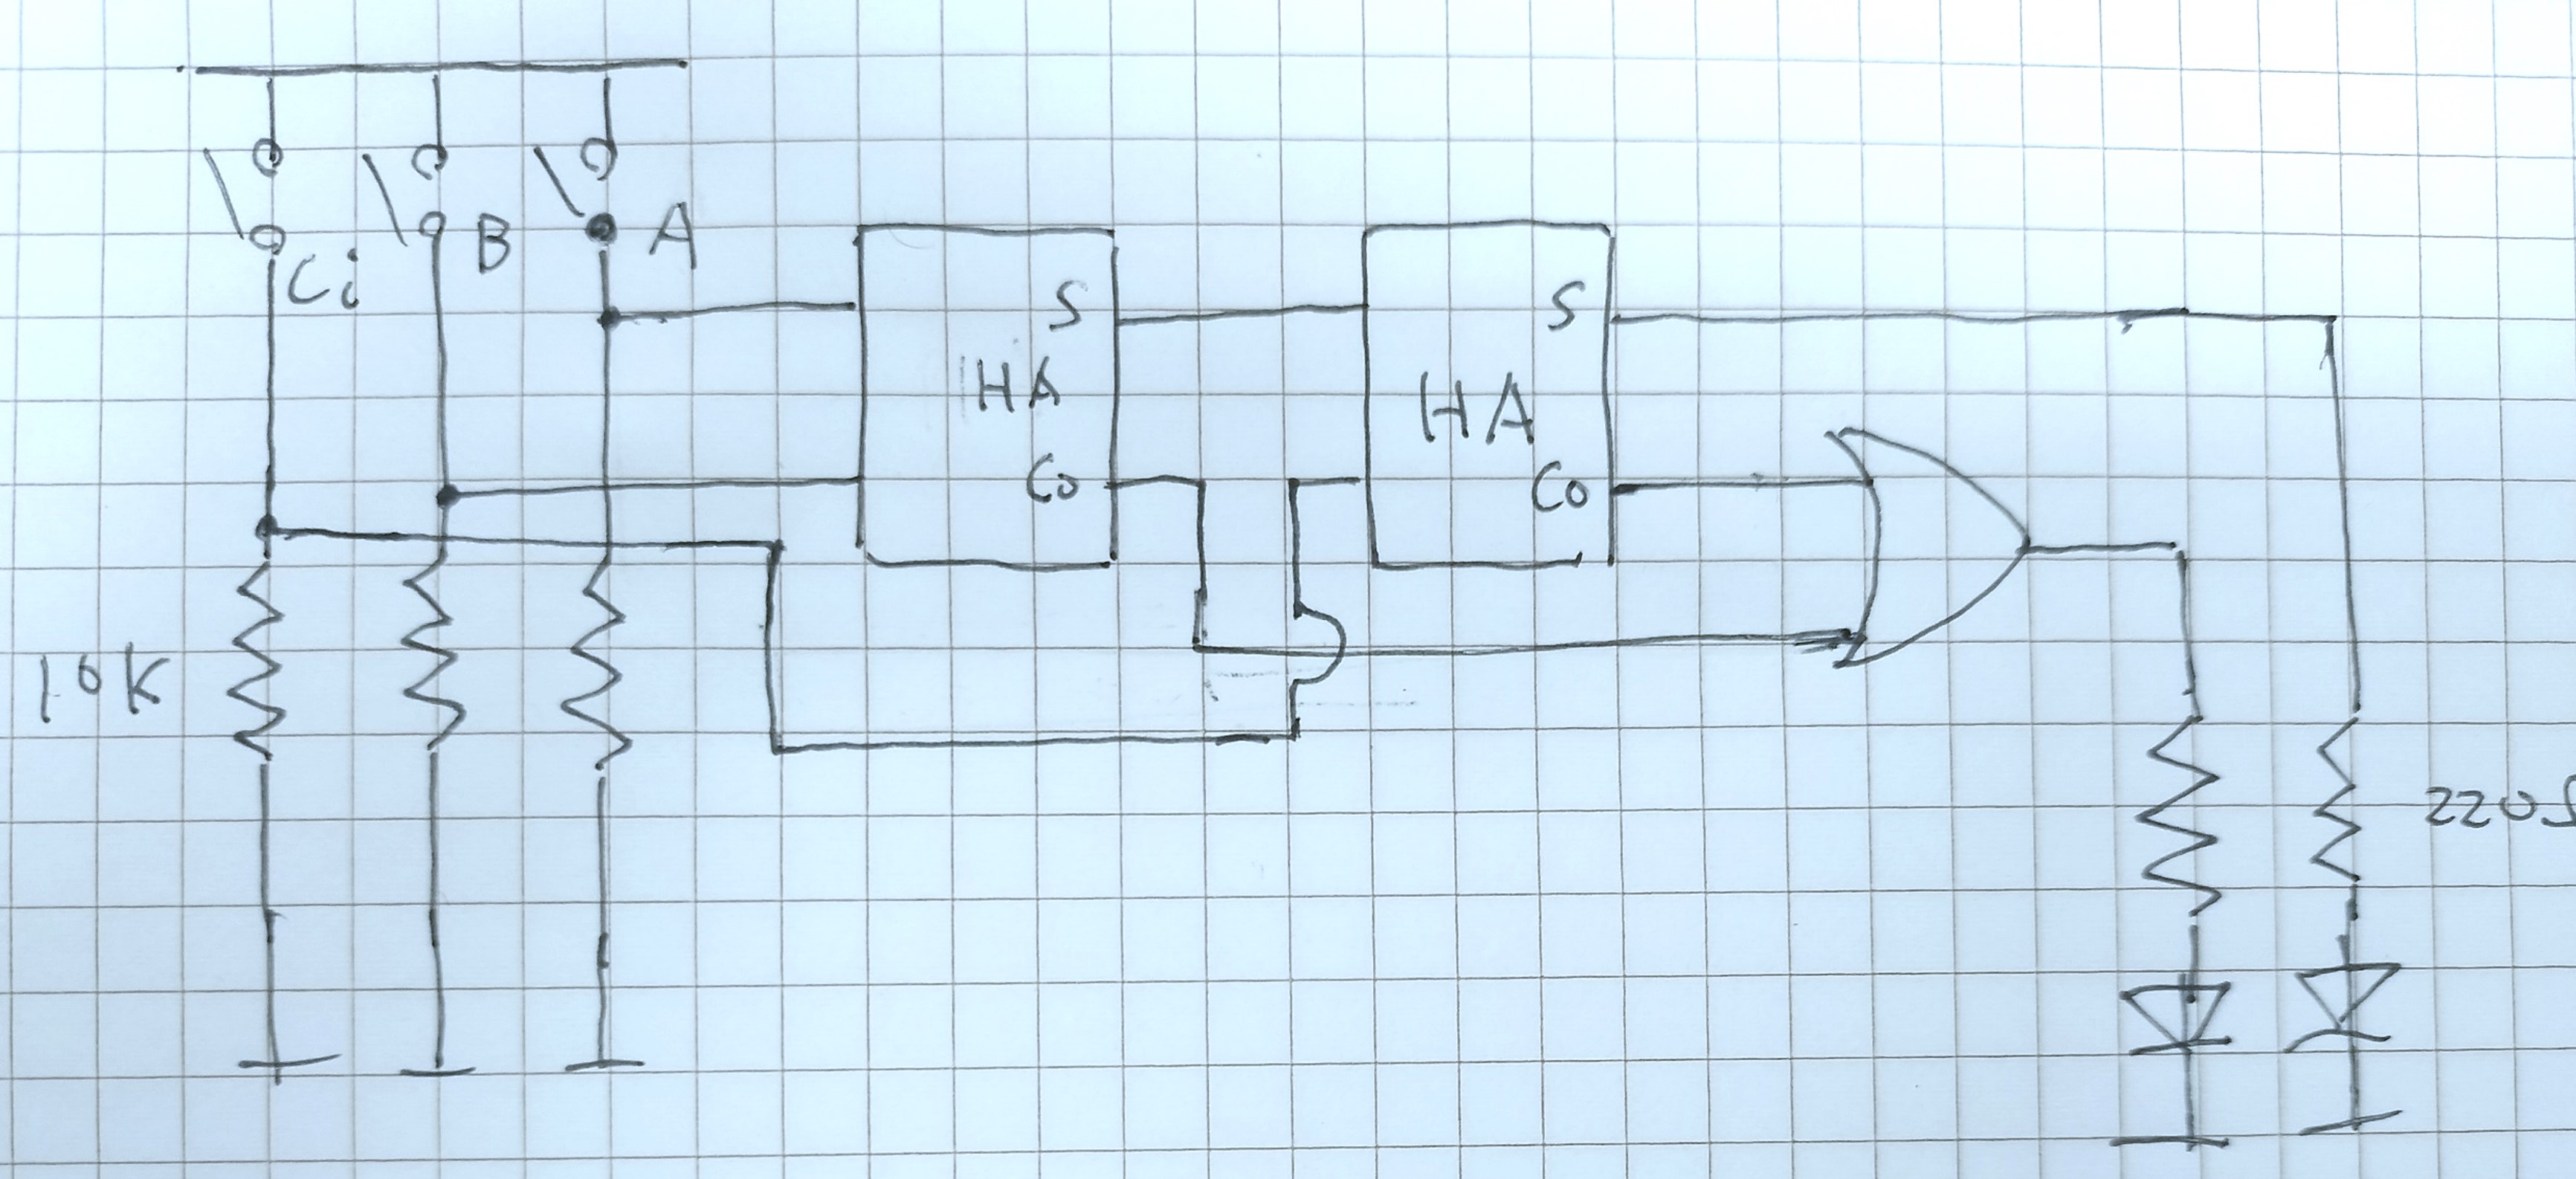 Ci
B
A
S
HA
Co
S
HA
Co
10K
220Ω